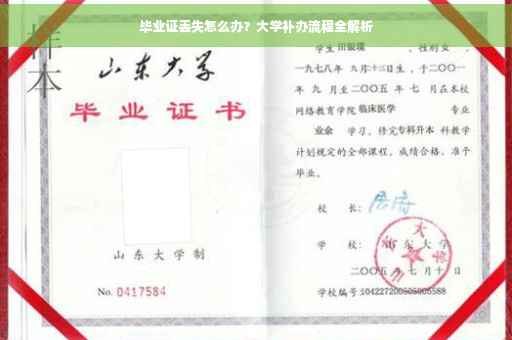 毕业证丢失怎么办？大学补办流程全解析
样本
山东大学
毕业证书
山东大学制
No. 0417584
学生 田银璞 ，性别女 ，
一九七八年 九月十三日生，于二〇〇一
年 九 月至二〇〇五 年 七 月在本校
网络教育学院 临床医学 专业
业余 学习，修完专科升本 科教学
计划规定的全部课程，成绩合格，准予
毕业。
校 长：
学 校：山东大学
二〇〇五 年 七 月 十 日
学校编号：104227200505005588